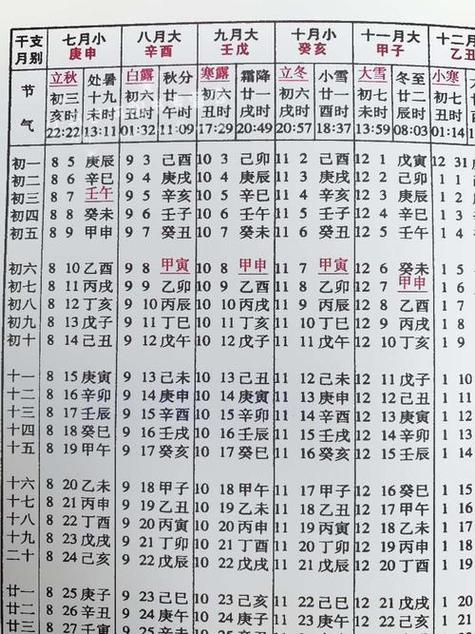 干支 七月小 八月大 九月大 十月小 十一月大 十二月
月别 庚申 辛酉 壬戌 癸亥 甲子 乙丑
节 立秋 处暑 白露 秋分 寒露 霜降 立冬 小雪 大雪 冬至 小寒
初三 十九 初六 廿一 初六 廿一 初六 廿一 初七 廿二 初七
气 亥时 未时 丑时 午时 酉时 戌时 戌时 酉时 未时 辰时 丑时
22:22 13:11 01:32 11:09 17:29 20:49 20:57 18:37 13:59 08:03 01:14
初一 8 5 庚辰 9 3 己酉 10 3 己卯 11 2 己酉 12 1 戊寅 12 31
初二 8 6 辛巳 9 4 庚戌 10 4 庚辰 11 3 庚戌 12 2 己卯 1 1
初三 8 7 壬午 9 5 辛亥 10 5 辛巳 11 4 辛亥 12 3 庚辰 1 2
初四 8 8 癸未 9 6 壬子 10 6 壬午 11 5 壬子 12 4 辛巳 1 3
初五 8 9 甲申 9 7 癸丑 10 7 癸未 11 6 癸丑 12 5 壬午 1 4
初六 8 10 乙酉 9 8 甲寅 10 8 甲申 11 7 甲寅 12 6 癸未 1 5
初七 8 11 丙戌 9 9 乙卯 10 9 乙酉 11 8 乙卯 12 7 甲申 1 6
初八 8 12 丁亥 9 10 丙辰 10 10 丙戌 11 9 丙辰 12 8 乙酉 1 7
初九 8 13 戊子 9 11 丁巳 10 11 丁亥 11 10 丁巳 12 9 丙戌 1 8
初十 8 14 己丑 9 12 戊午 10 12 戊子 11 11 戊午 12 10 丁亥 1 9
十一 8 15 庚寅 9 13 己未 10 13 己丑 11 12 己未 12 11 戊子 1 10
十二 8 16 辛卯 9 14 庚申 10 14 庚寅 11 13 庚申 12 12 己丑 1 11
十三 8 17 壬辰 9 15 辛酉 10 15 辛卯 11 14 辛酉 12 13 庚寅 1 12
十四 8 18 癸巳 9 16 壬戌 10 16 壬辰 11 15 壬戌 12 14 辛卯 1 13
十五 8 19 甲午 9 17 癸亥 10 17 癸巳 11 16 癸亥 12 15 壬辰 1 14
十六 8 20 乙未 9 18 甲子 10 18 甲午 11 17 甲子 12 16 癸巳 1 15
十七 8 21 丙申 9 19 乙丑 10 19 乙未 11 18 乙丑 12 17 甲午 1 16
十八 8 22 丁酉 9 20 丙寅 10 20 丙申 11 19 丙寅 12 18 乙未 1 17
十九 8 23 戊戌 9 21 丁卯 10 21 丁酉 11 20 丁卯 12 19 丙申 1 18
二十 8 24 己亥 9 22 戊辰 10 22 戊戌 11 21 戊辰 12 20 丁酉 1 19
廿一 8 25 庚子 9 23 己巳 10 23 己亥 11 22 己巳 12 21 戊戌 1 20
廿二 8 26 辛丑 9 24 庚午 10 24 庚子 11 23 庚午 12 22 己亥 1 21
廿三 8 27 壬寅